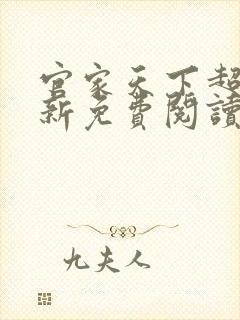 官家天下超
新免費閱讀
九夫人